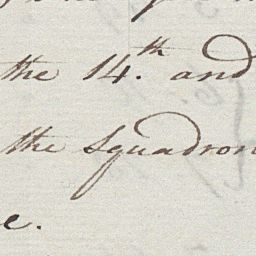 the 14.th and
the Squadron
e.